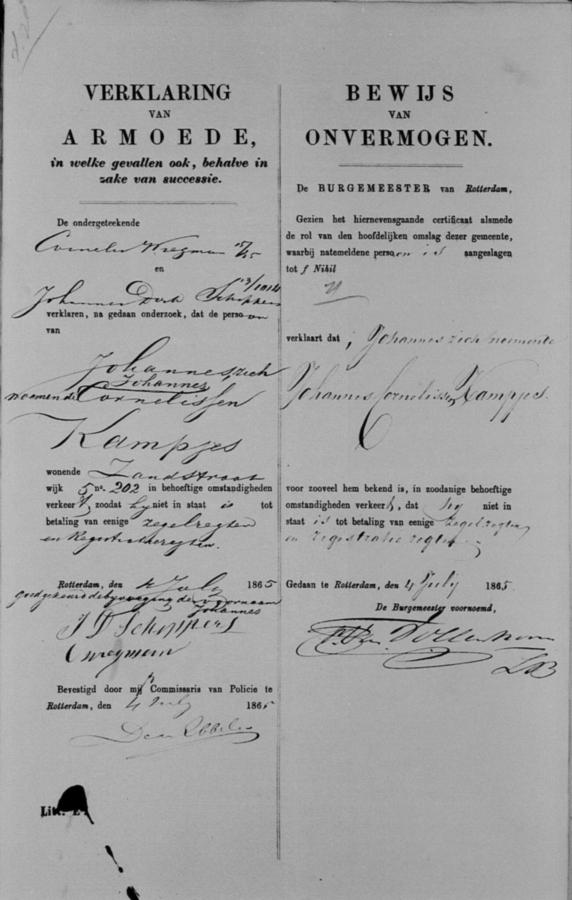 VERKLARING
VAN
ARMOEDE,
in welke gevallen ook, behalve in
zake van successie.
De ondergeteekende
Cornelis
en
Johannes Dirk Schippers
verklaren, na gedaan onderzoek, dat de persoon
van
Johannes zich
Johannes
noemende Cornelissen
Kampjes
wonende Zandstraat
wijk 5 no. 202 in behoeftige omstandigheden
verkeert, zoodat hy niet in staat is tot
betaling van eenige zegelregten
en Registratieregten.
Rotterdam, den 4 July 1865
goedgekeurd de byvoeging der voornaam
Johannes
J D Schippers
Bevestigd door mij Commissaris van Policie te
Rotterdam, den 4 July 1865
BEWIJS
VAN
ONVERMOGEN.
De BURGEMEESTER van Rotterdam,
Gezien het hiernevensgaande certificaat alsmede
de rol van den hoofdelijken omslag dezer gemeente,
waarbij natemeldene persoon is aangeslagen
tot f Nihil
verklaart dat Johannes zich noemende
Johannes Cornelissen Kampjes
voor zooveel hem bekend is, in zoodanige behoeftige
omstandigheden verkeert, dat hy niet in
staat is tot betaling van eenige zegelregten
en registratie regten
Gedaan te Rotterdam, den 4 July 1865
De Burgemeester voornoemd,